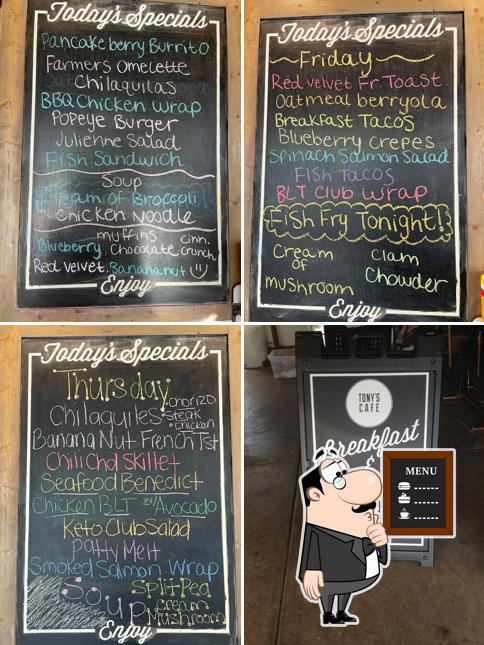 Today's Specials
Pancake berry Burrito
Farmers Omelette
Chilaquilas
BBQ Chicken Wrap
Popeye Burger
Julienne Salad
Fish Sandwich
Soup
Cream of Broccoli
Chicken Noodle
muffins cinn.
Blueberry Chocolate crunch
Red velvet Banana nut
Enjoy
Today's Specials
Friday
Red velvet Fr. Toast
Oatmeal berryola
Breakfast Tacos
Blueberry crepes
Spinach Salmon Salad
Fish Tacos
BLT Club Wrap
Fish Fry Tonight!
Cream of mushroom
Clam Chowder
Enjoy
Today's Specials
Thursday
Chilaquiles
•chorizo
•steak
•chicken
Banana Nut French Tst
Chili Chd Skillet
Seafood Benedict
Chicken BLT w/Avocado
Keto Club Salad
Patty Melt
Smoked Salmon Wrap
Soup
Split Pea
cream
Mushroom
Enjoy
TONY'S
CAFE
Breakfast
&
MENU